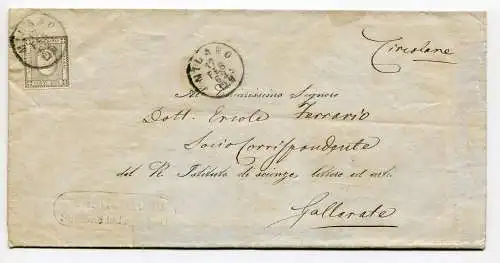 MILANO
Circolare
MILANO
17
Al Chiarissimo Signore
Dott. Ercole Ferrario
Socio Corrispondente
del R. Istituto di scienze, lettere ed arti
Gallarate